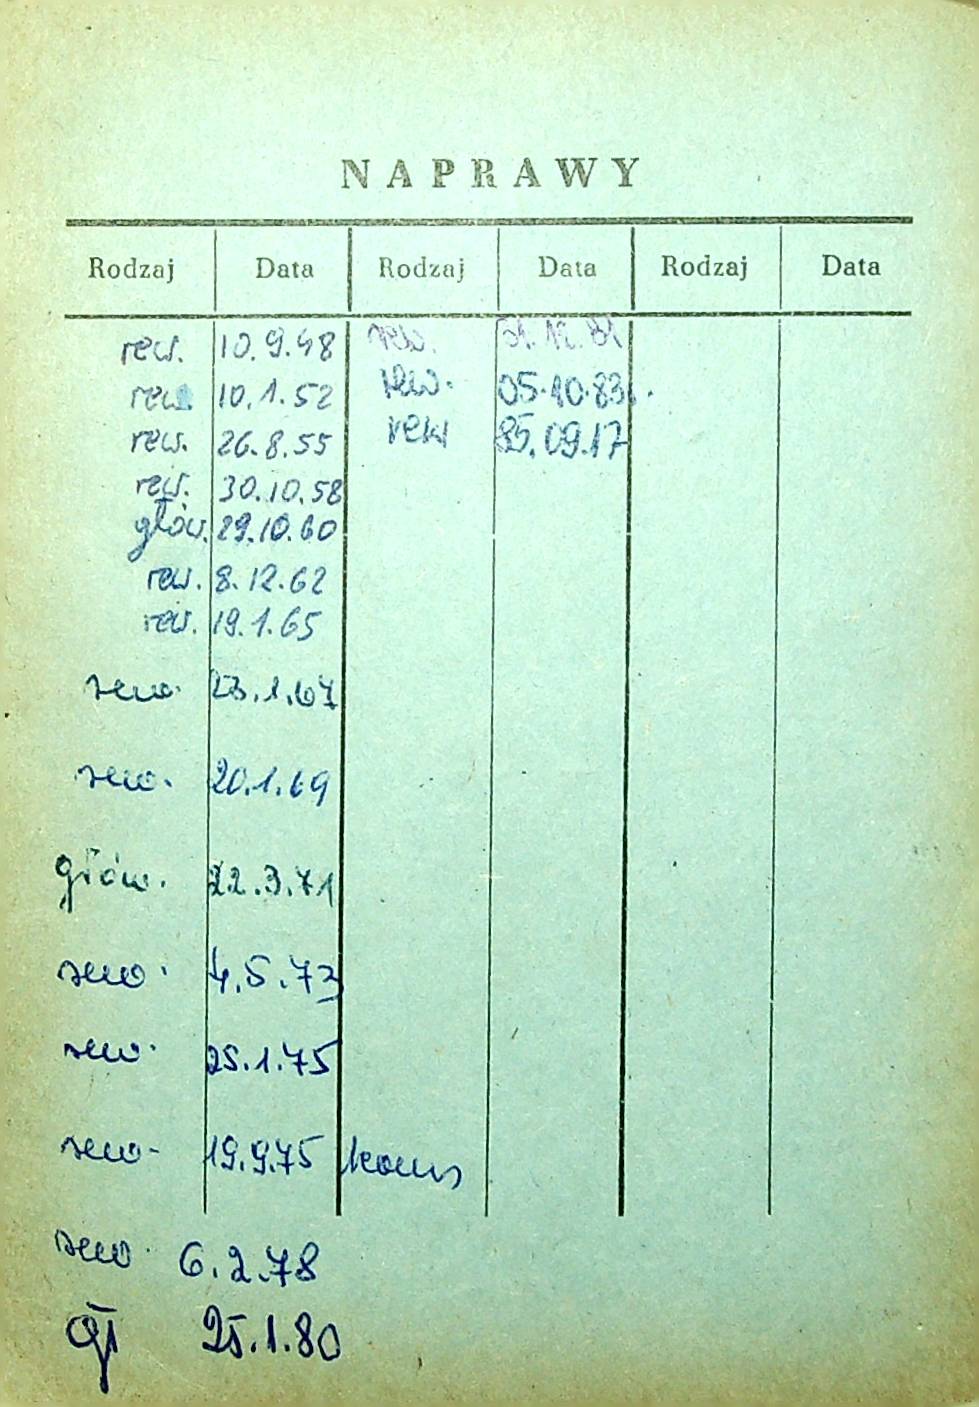 NAPRAWY
Rodzaj Data Rodzaj Data Rodzaj Data
rew. 10.9.48 rew. 31.12.81
rew. 10.1.52 rew. 05.10.83.
rew. 26.8.55 rew 85.09.17
rew. 30.10.58
głów. 29.10.60
rew. 8.12.62
rew. 19.1.65
rew. 23.1.67
rew. 20.1.69
głów. 22.3.71
rew. 4.5.73
rew. 25.1.75
rew- 19.9.75 kons
rew. 6.2.78
gł 25.1.80